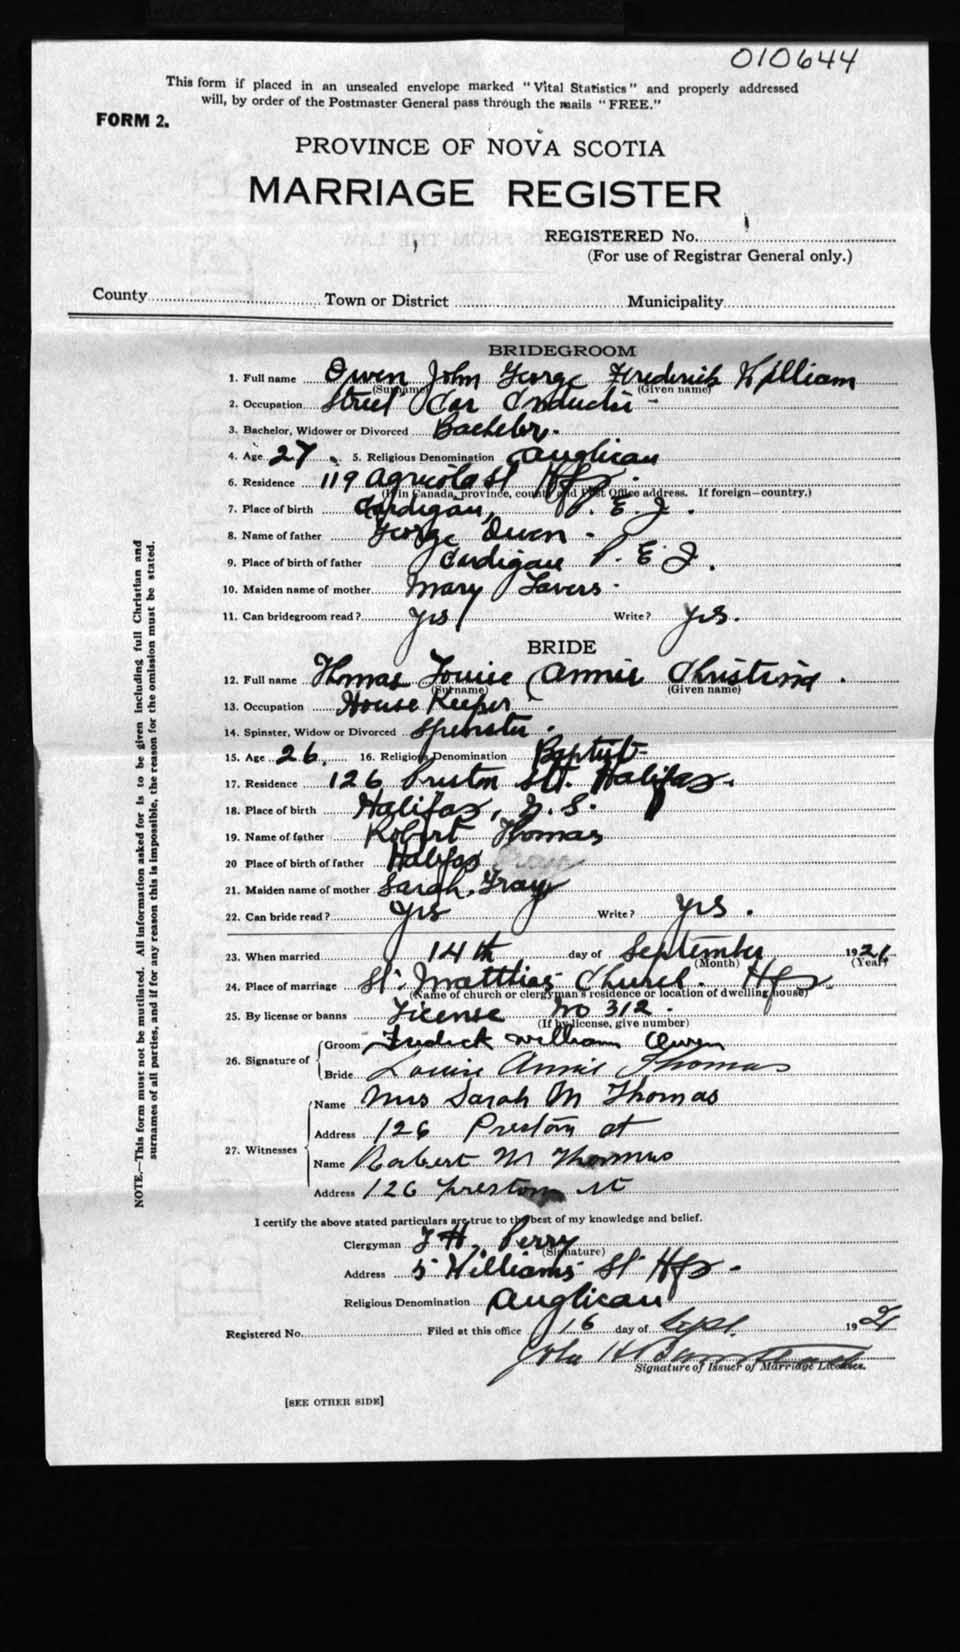 010644
This form if placed in an unsealed envelope marked "Vital Statistics" and properly addressed
will, by order of the Postmaster General pass through the mails "FREE."
FORM 2.
PROVINCE OF NOVA SCOTIA
MARRIAGE REGISTER
REGISTERED No.
(For use of Registrar General only.)
County Town or District Municipality
BRIDEGROOM
1. Full name Owen John George Frederick William
(Surname) (Given name)
2. Occupation Street Car Conductor -
3. Bachelor, Widower or Divorced Bachelor.
4. Age 27. 5. Religious Denomination Anglican
6. Residence 119 Agricola St Hfx.
(If in Canada, province, county and Post Office address. If foreign—country.)
7. Place of birth Cardigan, P. E. I.
8. Name of father George Owen -
9. Place of birth of father Cardigan P. E I.
10. Maiden name of mother Mary Lavers -
11. Can bridegroom read? Yes Write? Yes.
BRIDE
12. Full name Thomas Louise Annie Christina.
(Surname) (Given name)
13. Occupation House Keeper
14. Spinster, Widow or Divorced Spinster.
15. Age 26. 16. Religious Denomination Baptist
17. Residence 126 Preston St. Halifax.
18. Place of birth Halifax, N. S.
19. Name of father Robert Thomas
20 Place of birth of father Halifax
21. Maiden name of mother Sarah Gray
22. Can bride read? Yes Write? Yes.
23. When married 14th day of September 1921
(Month) (Year)
24. Place of marriage St. Matthias Church. Hfx.
(Name of church or clergyman's residence or location of dwelling house)
25. By license or banns License No 312.
(If by license, give number)
26. Signature of Groom Fredick William Owen
Bride Louise Annie Thomas
27. Witnesses Name Mrs Sarah M Thomas
Address 126 Preston st
Name Robert M Thomas
Address 126 Preston st
I certify the above stated particulars are true to the best of my knowledge and belief.
Clergyman T. H. Perry
(Signature)
Address 5 Williams St Hfx.
Religious Denomination Anglican
Registered No. Filed at this office 16 day of Sept. 1921
John H
Signature of Issuer of Marriage Licenses.
[SEE OTHER SIDE]
NOTE.—This form must not be mutilated. All information asked for is to be given including full Christian and
surnames of all parties, and if for any reason this is impossible, the reason for the omission must be stated.